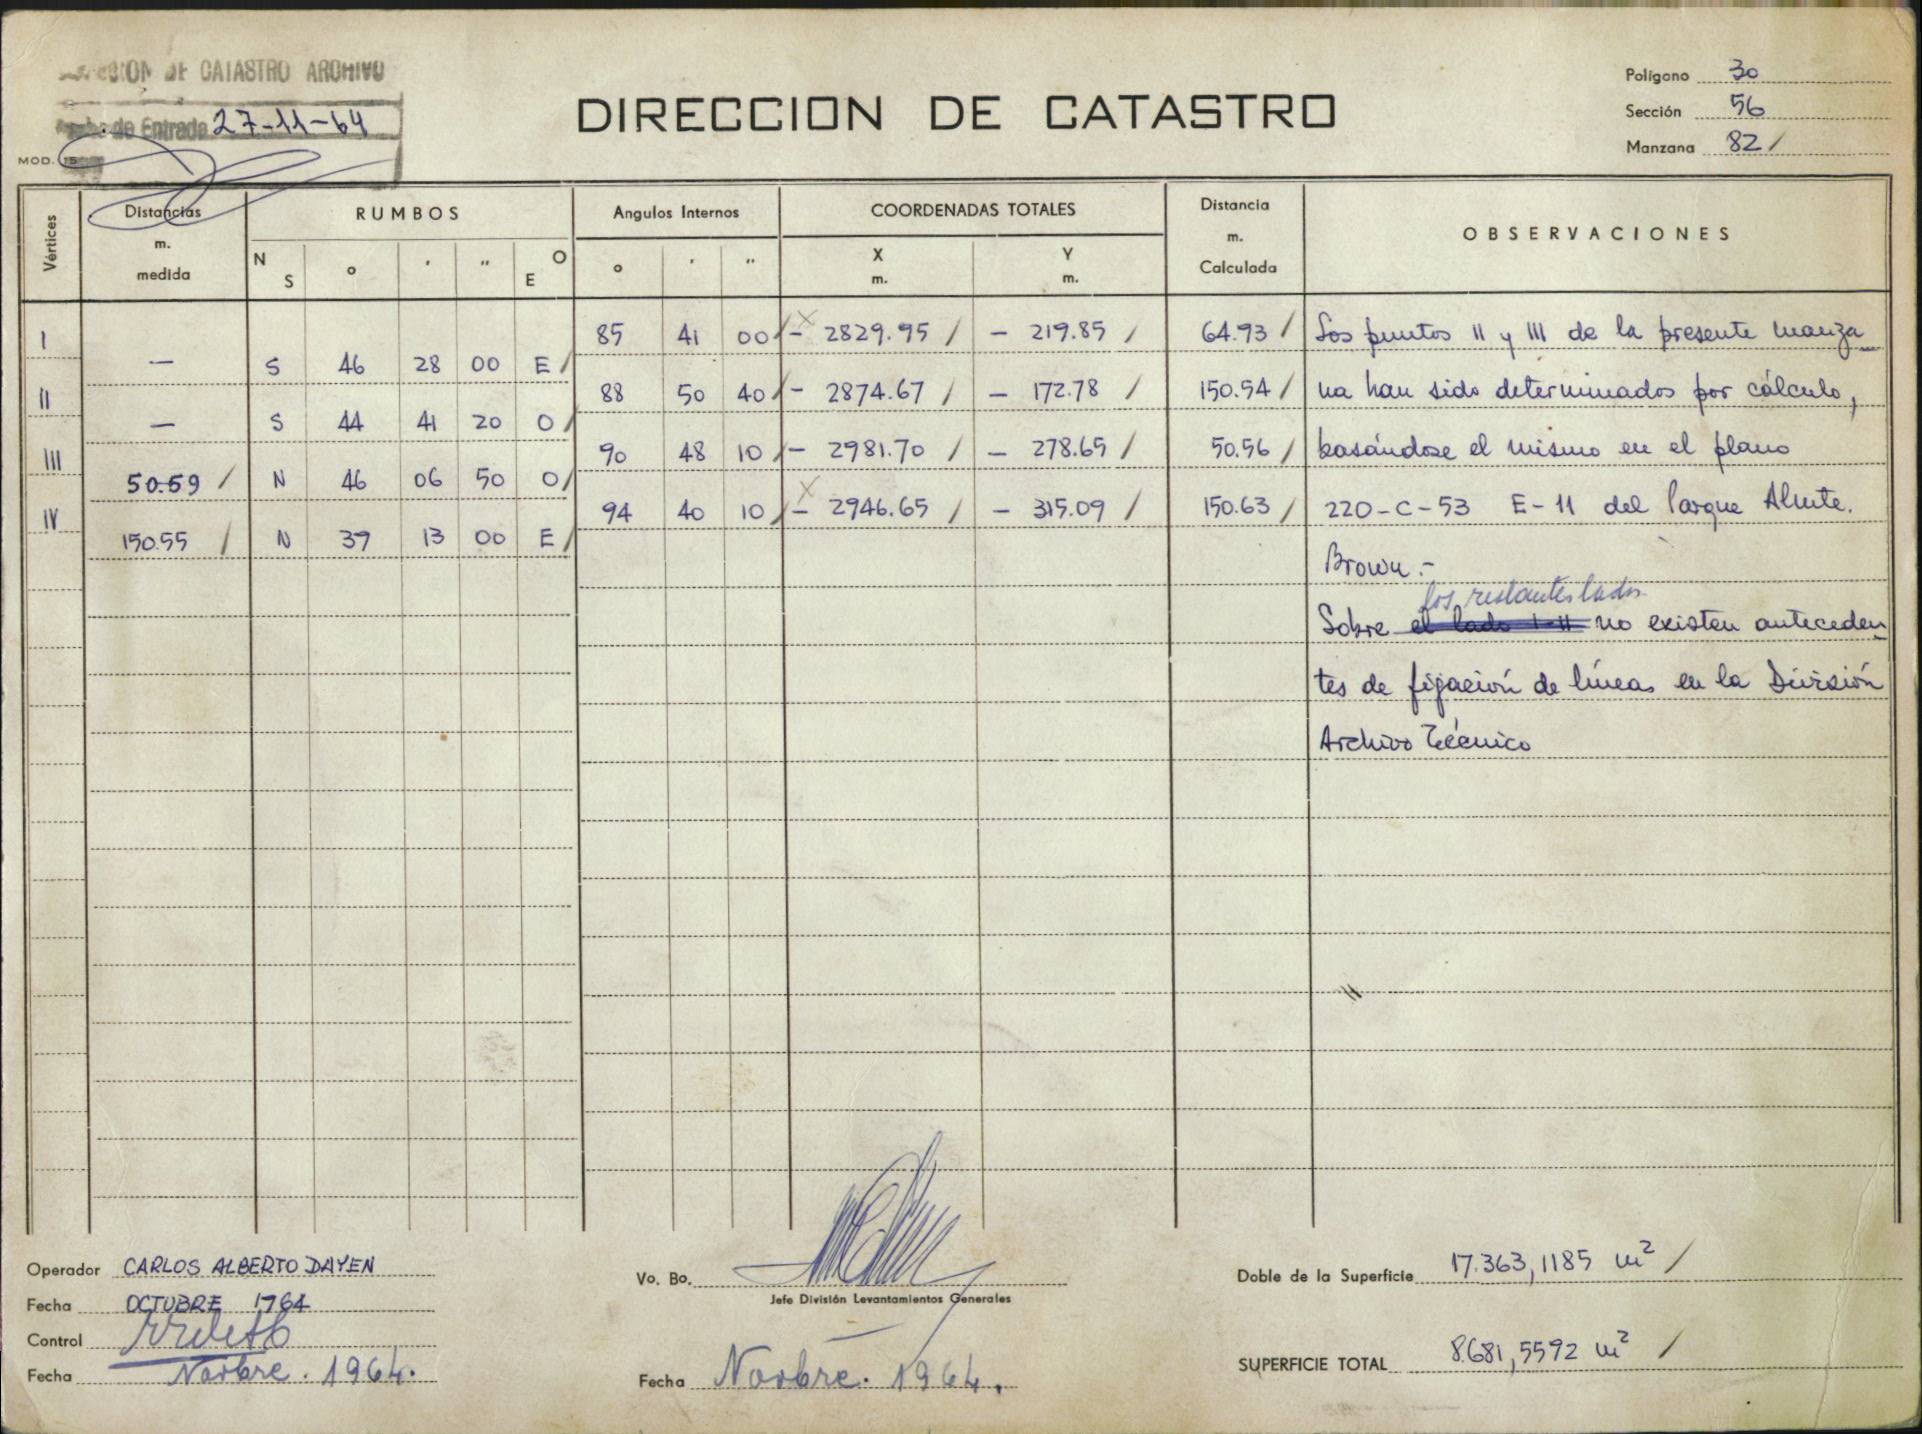 DE CATASTRO ARCHIVO
de Entrada 27-11-64
MOD.
DIRECCION DE CATASTRO
Polígono 30
Sección 56
Manzana 82 /
Vértices
Distancias m. medida
RUMBOS
Angulos Internos
COORDENADAS TOTALES
Distancia m. Calculada
OBSERVACIONES
N S o ' " O E
o ' "
X m.
Y m.
I 85 41 00 / - 2829.95 / - 219.85 / 64.93 / Los puntos II y III de la presente manza_
— S 46 28 00 E /
II 88 50 40 / - 2874.67 / - 172.78 / 150.54 / na han sido determinados por cálculo,
— S 44 41 20 O /
III 90 48 10 / - 2981.70 / - 278.65 / 50.56 / basándose el mismo en el plano
50.59 / N 46 06 50 O /
IV 94 40 10 / - 2946.65 / - 315.09 / 150.63 / 220-C-53 E-11 del Parque Almte.
150.55 / N 39 13 00 E /
Brown.-
los restantes lados
Sobre el lado I-II no existen anteceden_
tes de fijación de líneas en la División
Archivo Técnico
Operador CARLOS ALBERTO DAYEN
Fecha OCTUBRE 1964
Control
Fecha Novbre. 1964.
Vo. Bo.
Jefe División Levantamientos Generales
Fecha Novbre. 1964.
Doble de la Superficie 17.363,1185 m² /
SUPERFICIE TOTAL 8.681,5592 m² /